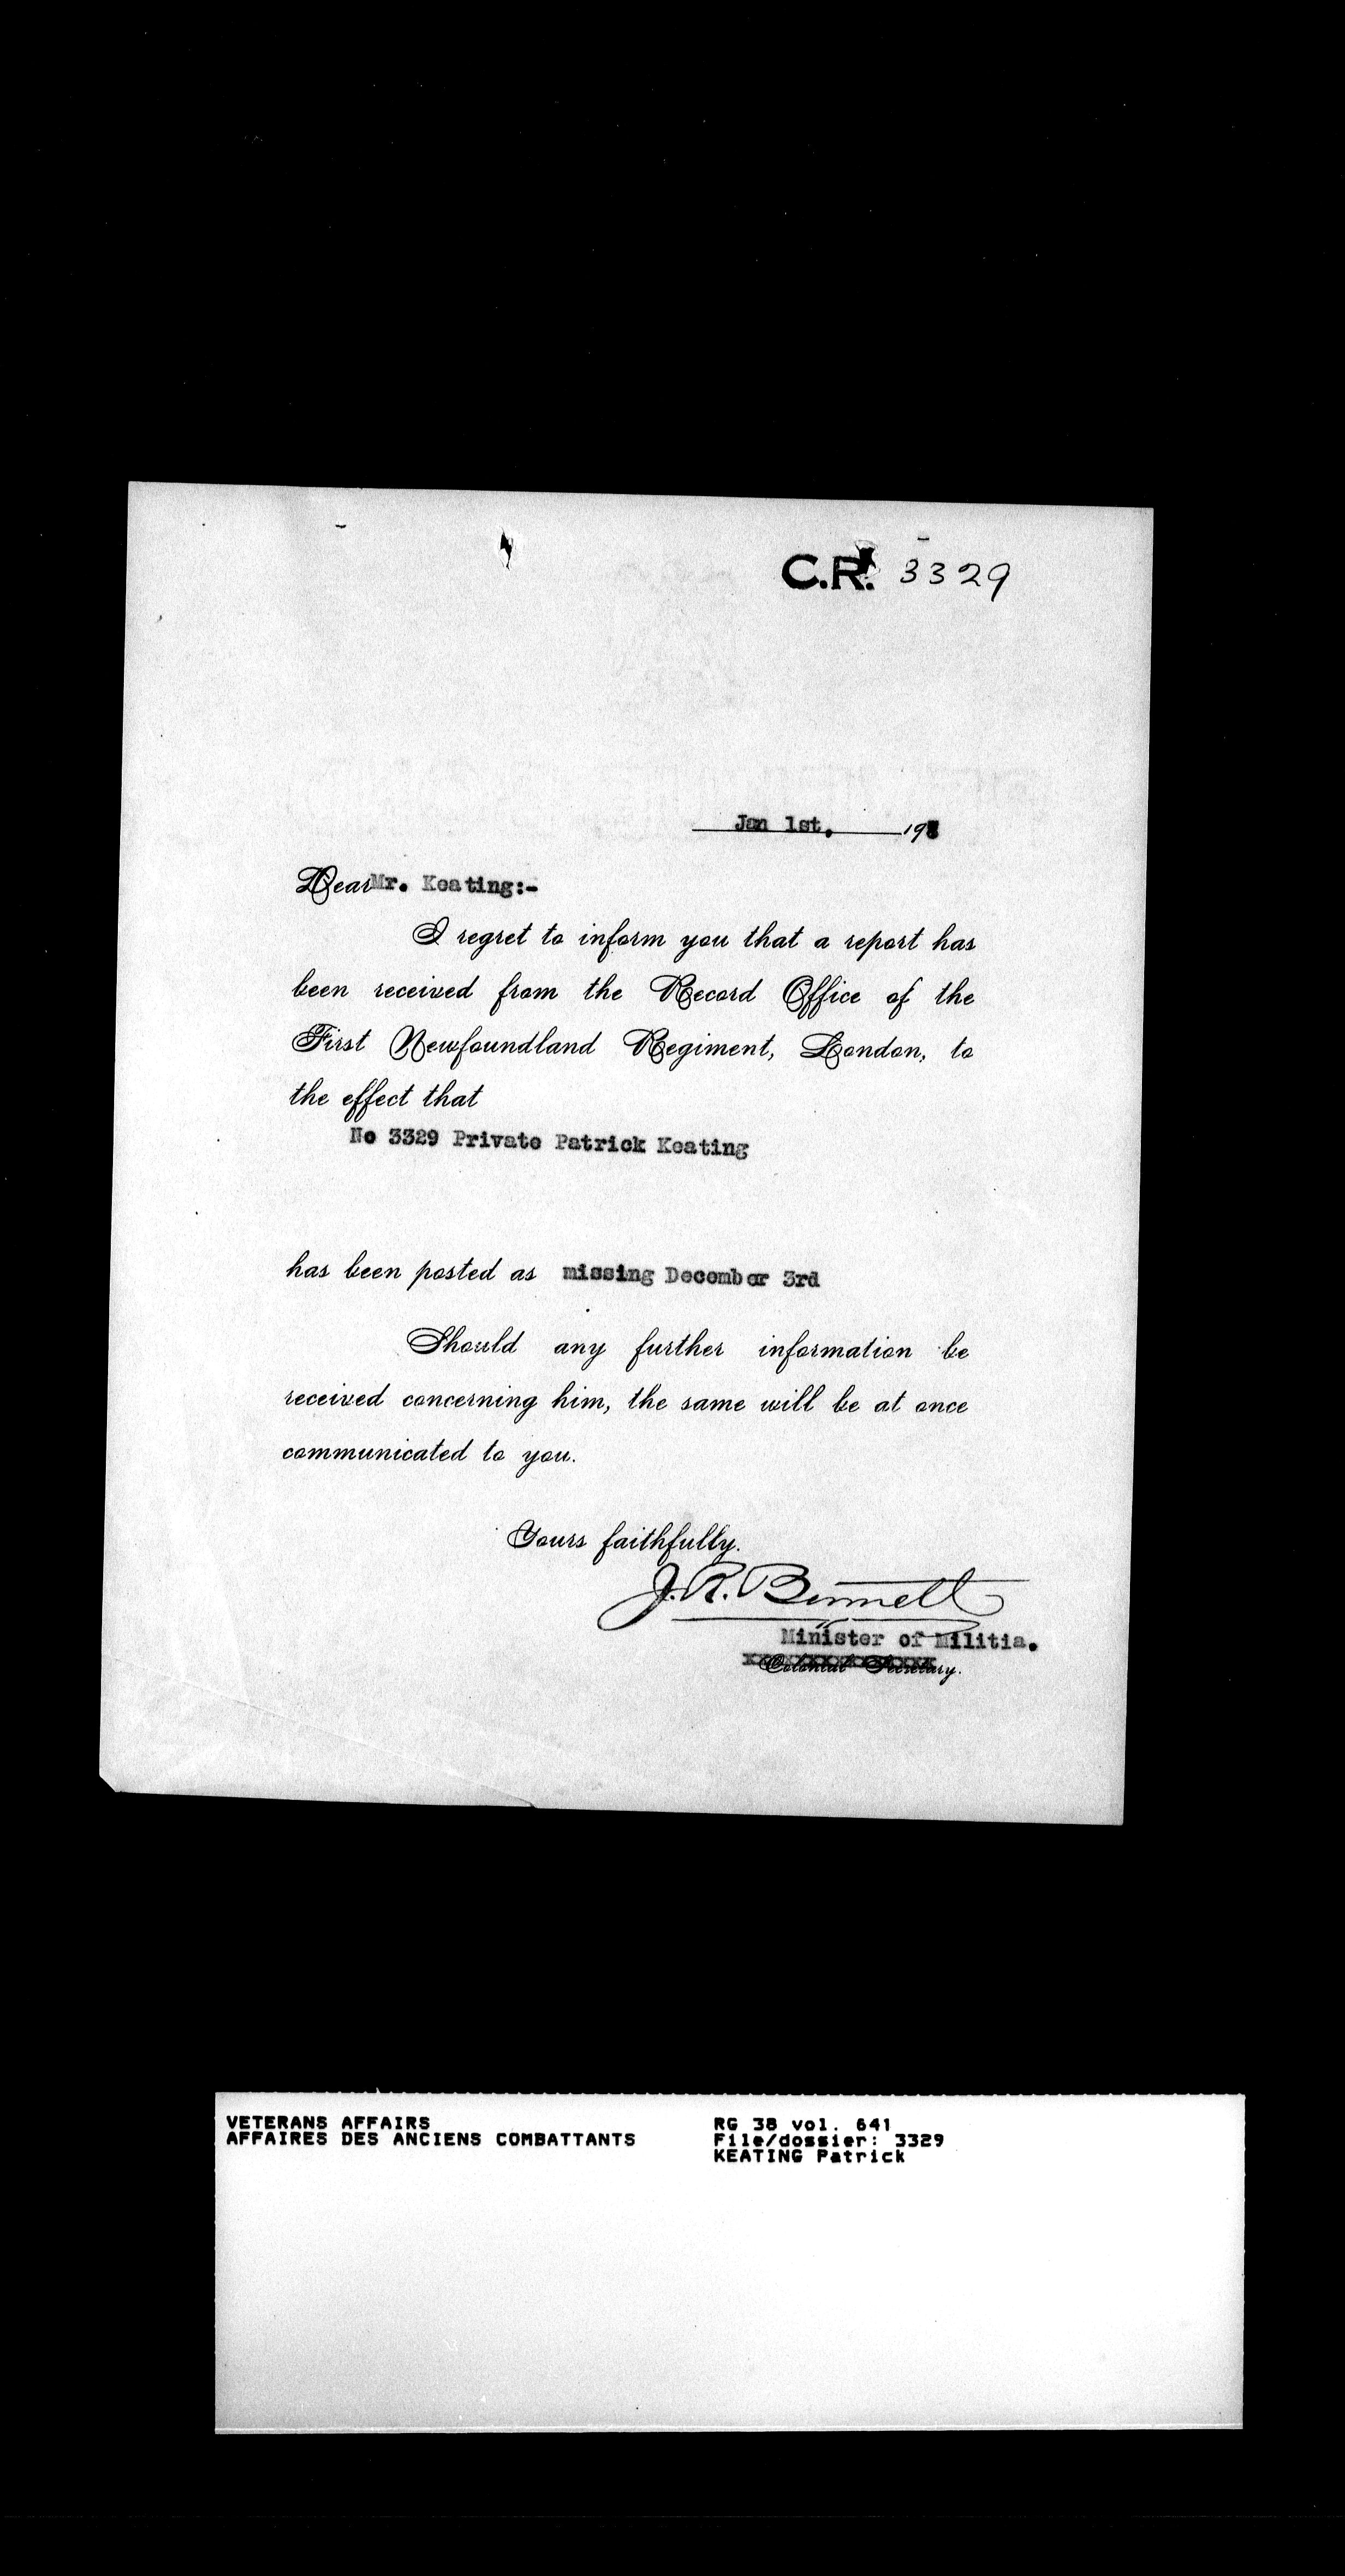 C.R. 3329
Jan 1st. 198
Dear Mr. Keating:-
I regret to inform you that a report has
been received from the Record Office of the
First Newfoundland Regiment, London, to
the effect that
No 3329 Private Patrick Keating
has been posted as missing December 3rd
Should any further information be
received concerning him, the same will be at once
communicated to you.
Yours faithfully.
J. R. Bennett
Minister of Militia.
Colonial Secretary.
VETERANS AFFAIRS
AFFAIRES DES ANCIENS COMBATTANTS
RG 38 vol. 641
File/dossier: 3329
KEATING Patrick